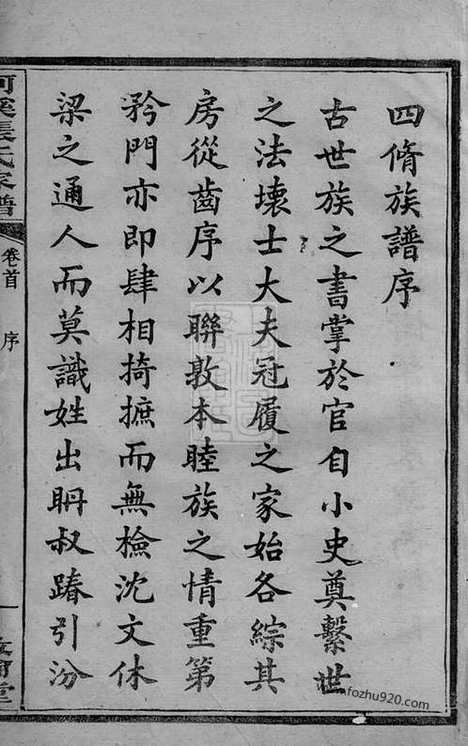 四脩族譜序
古世族之書掌於官自小史奠繫世
之法壞士大夫冠履之家始各綜其
房從齒序以聯敦本睦族之情重第
矜門亦即肆相掎摭而無檢沈文休
梁之通人而莫識姓出聃叔踳引汾
河溪張氏家譜
卷首
序
一
infozhu920.com